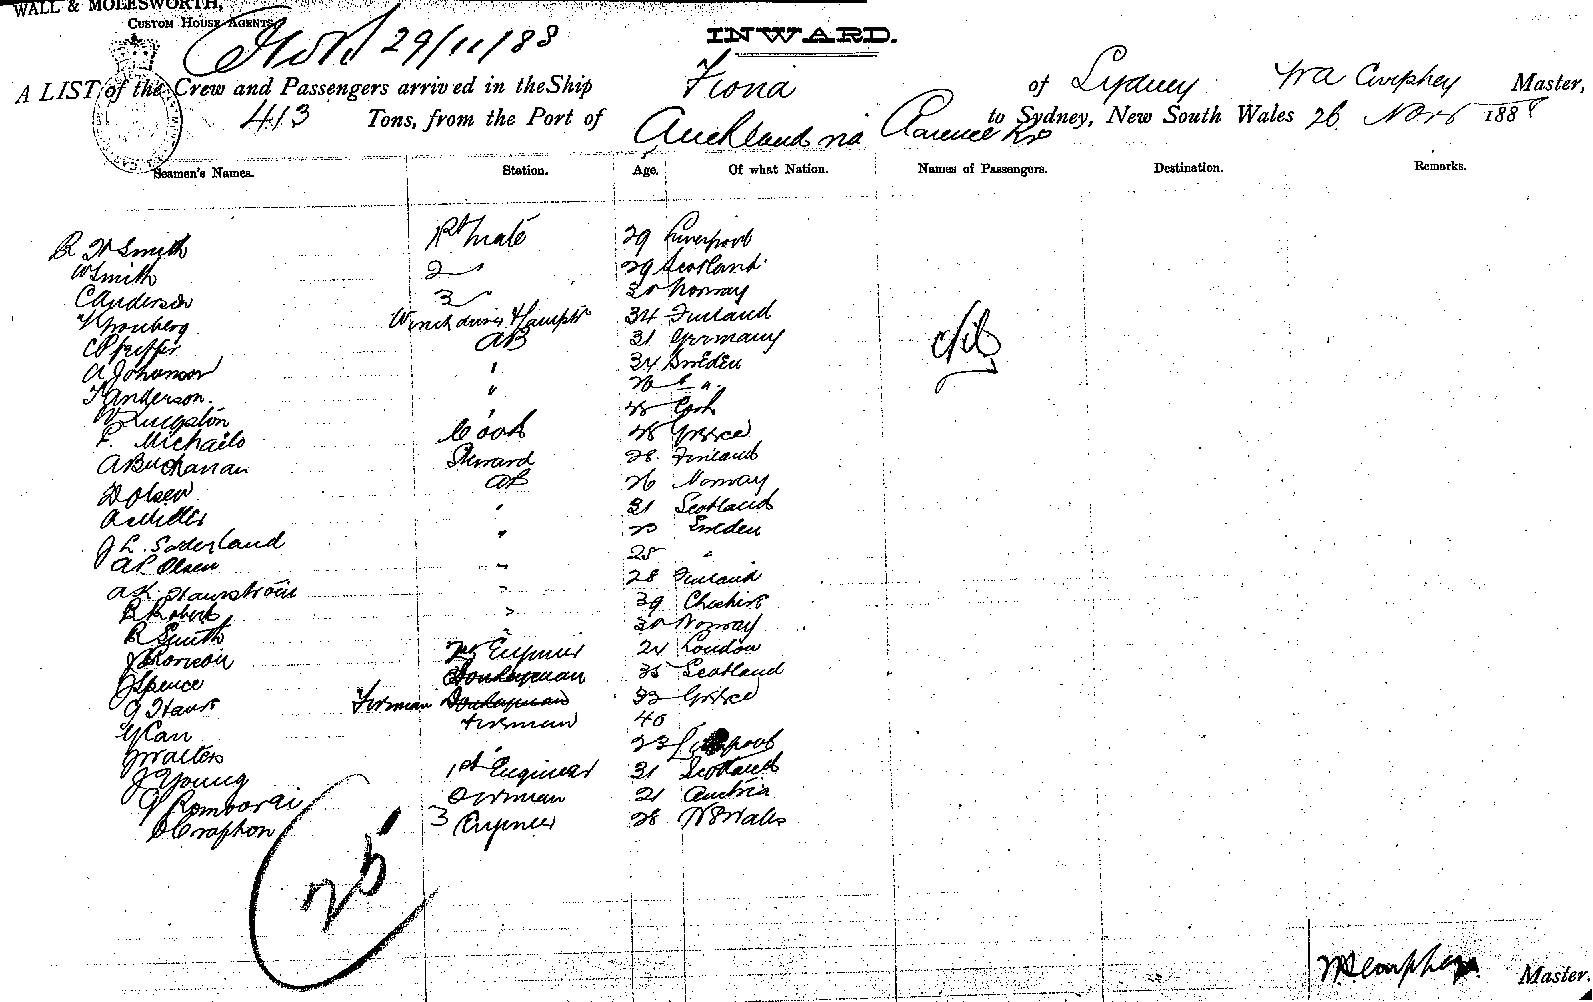 WALL & MOLESWORTH,
CUSTOM HOUSE AGENTS
29/11/88
INWARD.
A LIST of the Crew and Passengers arrived in the Ship Fiona of Sydney Master,
413 Tons, from the Port of Auckland via Clarence Rr to Sydney, New South Wales 26 Novr 1888
Seamen's Names. Station. Age. Of what Nation. Names of Passengers. Destination. Remarks.
R W Smith 1st Mate 29 Liverpool
W Smith 2 " 29 Scotland
C Anderson 3 " 30 Norway
34 Finland
AB 31 Germany
A Johanson " 34 Sweden
F Anderson. " 26 "
W Lingston " 45 Cork
P. Michailo Cook 48 Greece
A Buchanan Steward 28 Finland
D Olsen AB 26 Norway
A Miller " 31 Scotland
J L. Soderland " 23 Sweden
A P Olsen " 25 "
" 28 Finland
R Roberts " 39 Cheshire
R Smith " 30 Norway
2nd Engineer 24 London
J Spence Donkeyman 35 Scotland
Fireman Donkeyman 33 Greece
Fireman 40
J Walters 23 Liverpool
J Young 1st Engineer 31 Scotland
Fireman 21 Austria
3 Engineer 28 N S Wales
Nil
25
Master.